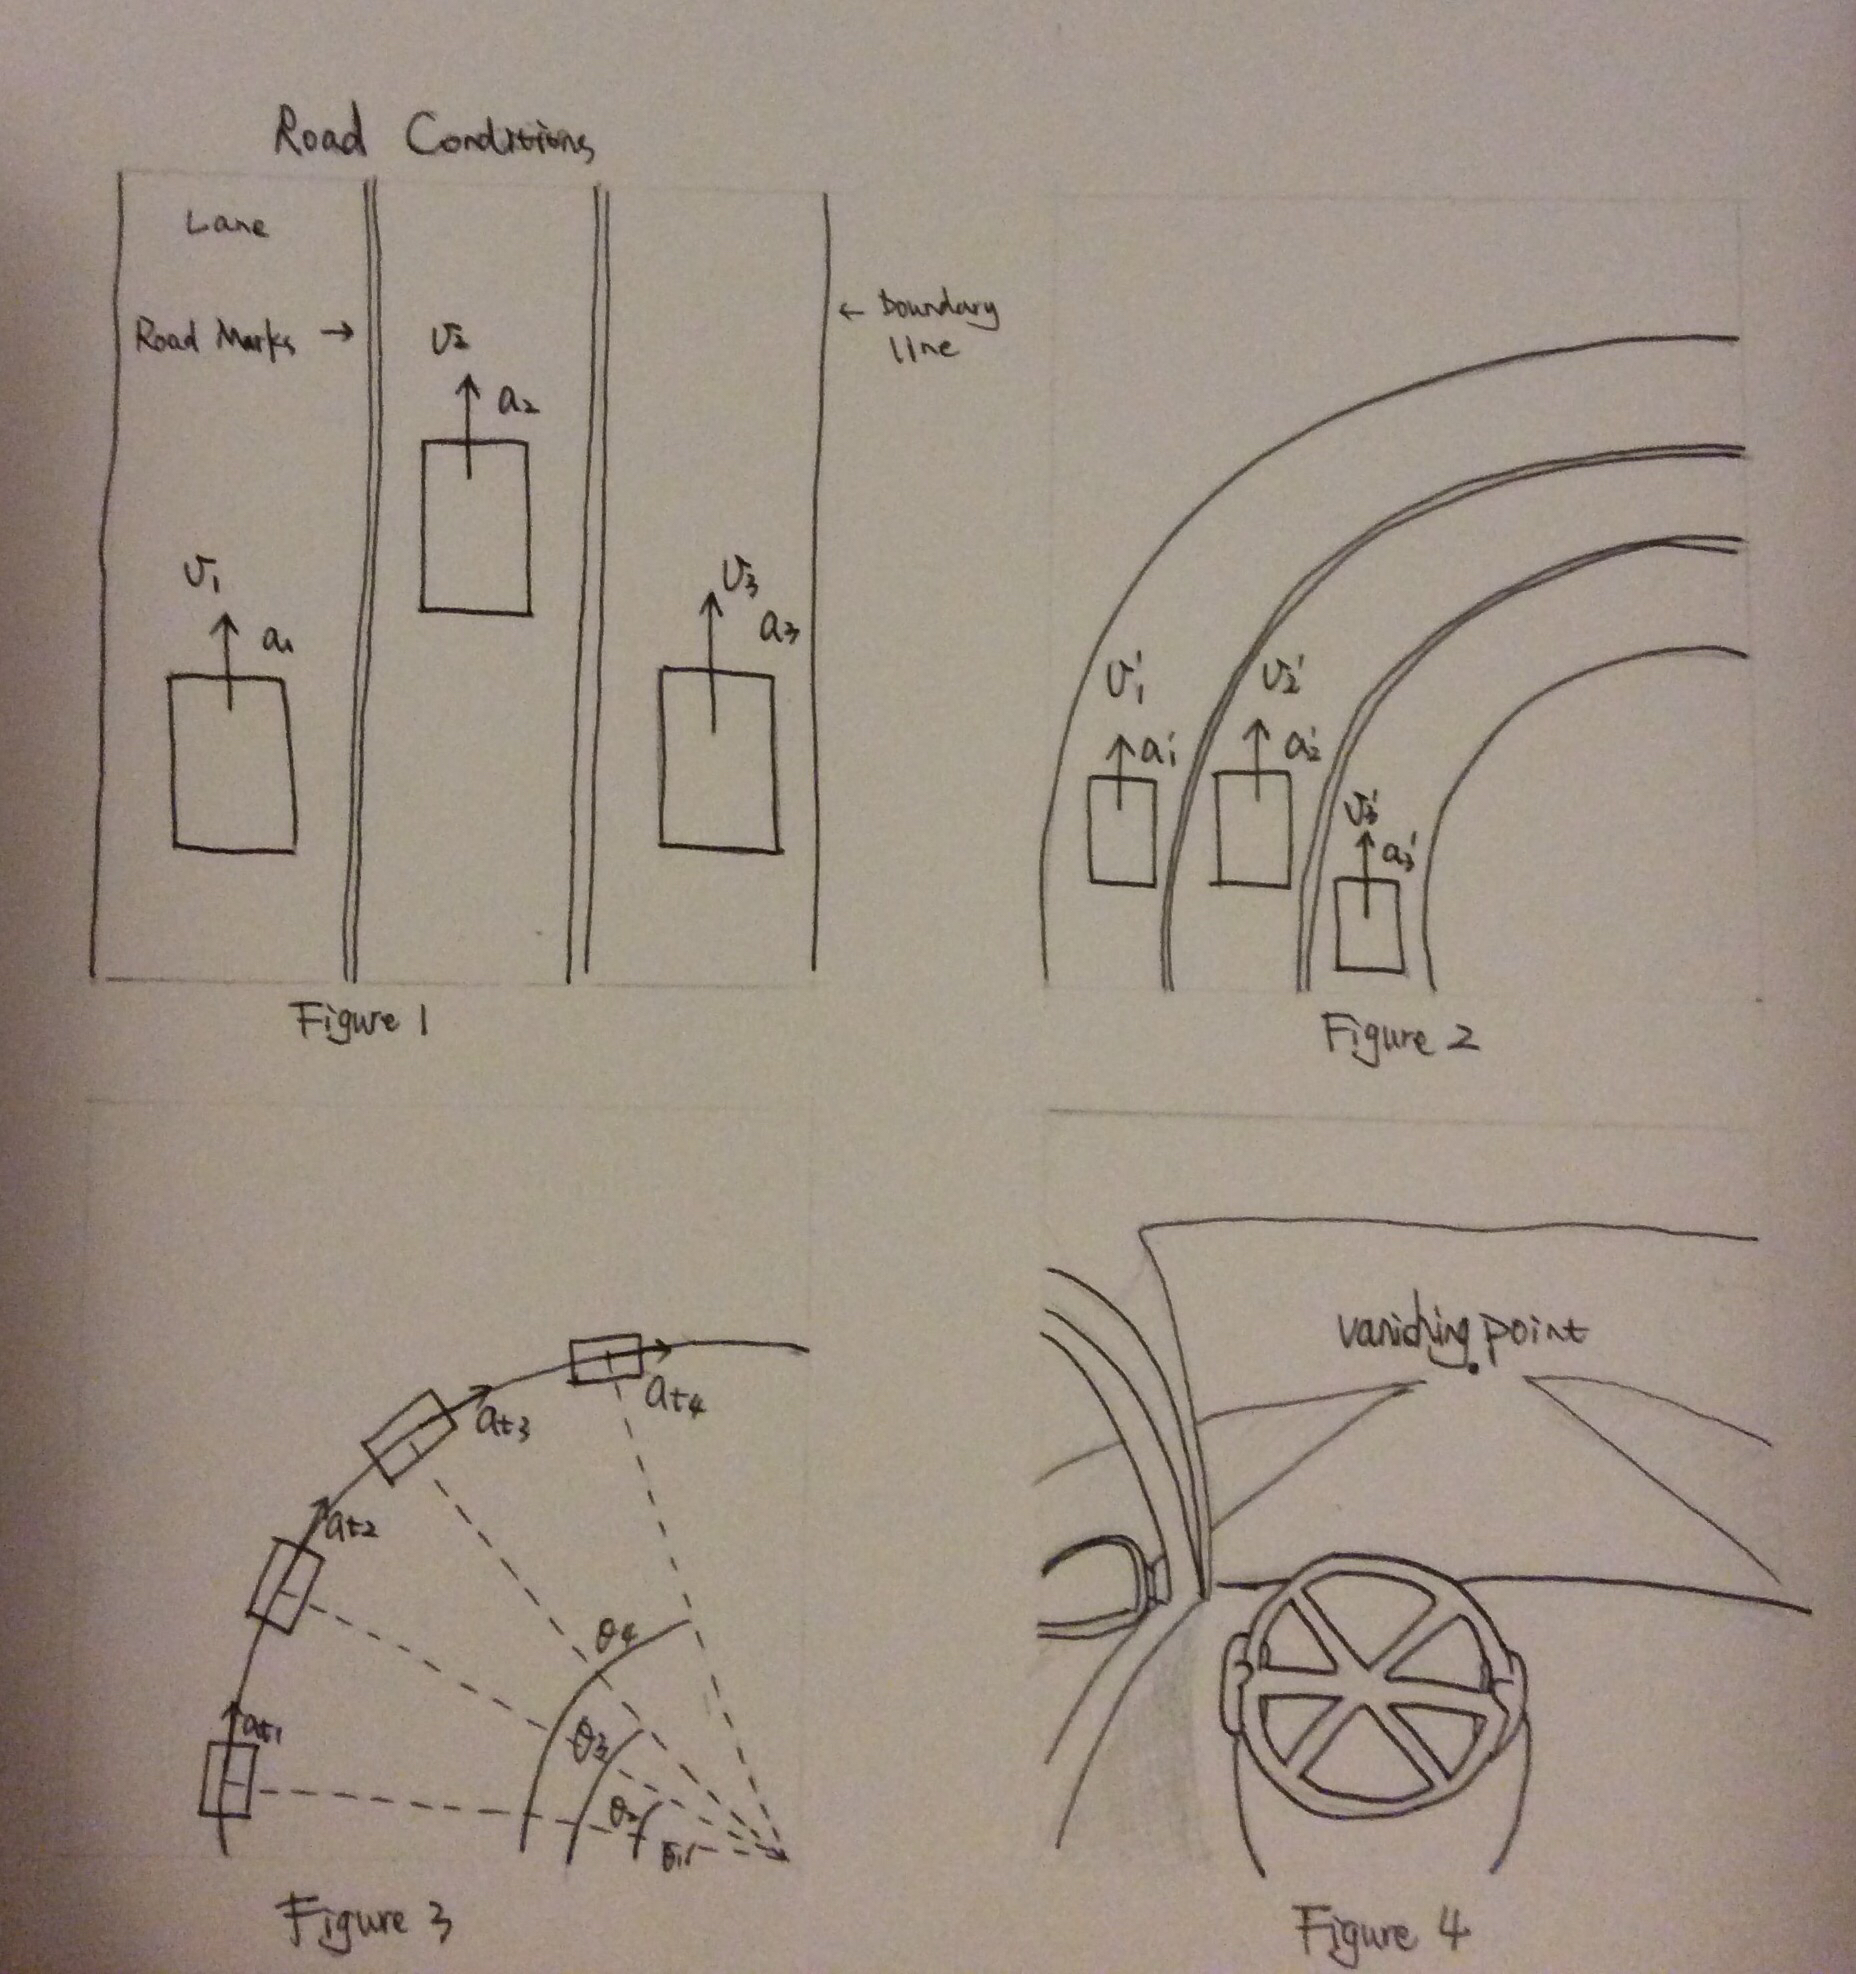 Road Conditions
Lane
Road Marks →
← boundary
line
v₂
a₂
v₁
a₁
v₃
a₃
Figure 1
v'₁
a'₁
v'₂
a'₂
v'₃
a'₃
Figure 2
at4
at3
at2
at1
θ4
θ3
θ2
θ1
Figure 3
vanishing point
Figure 4